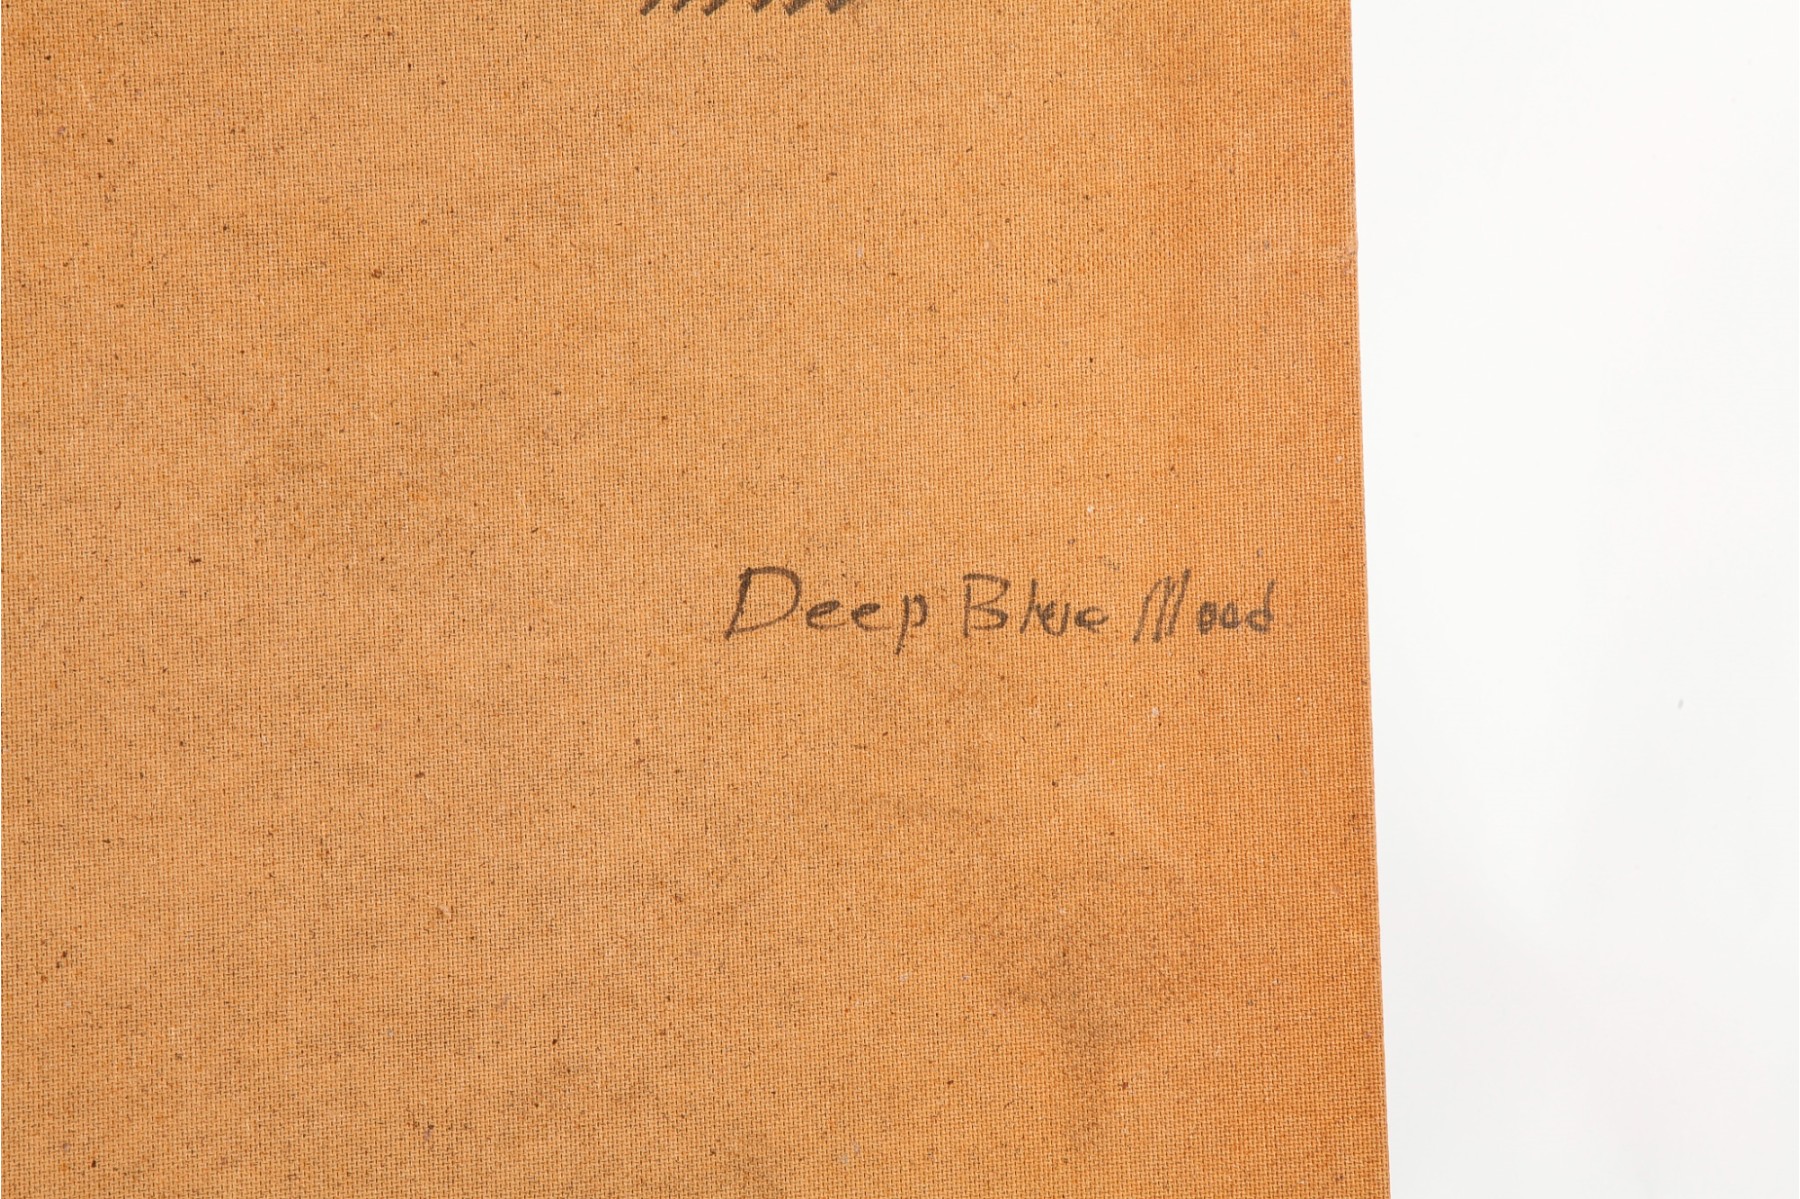 Deep Blue Mood